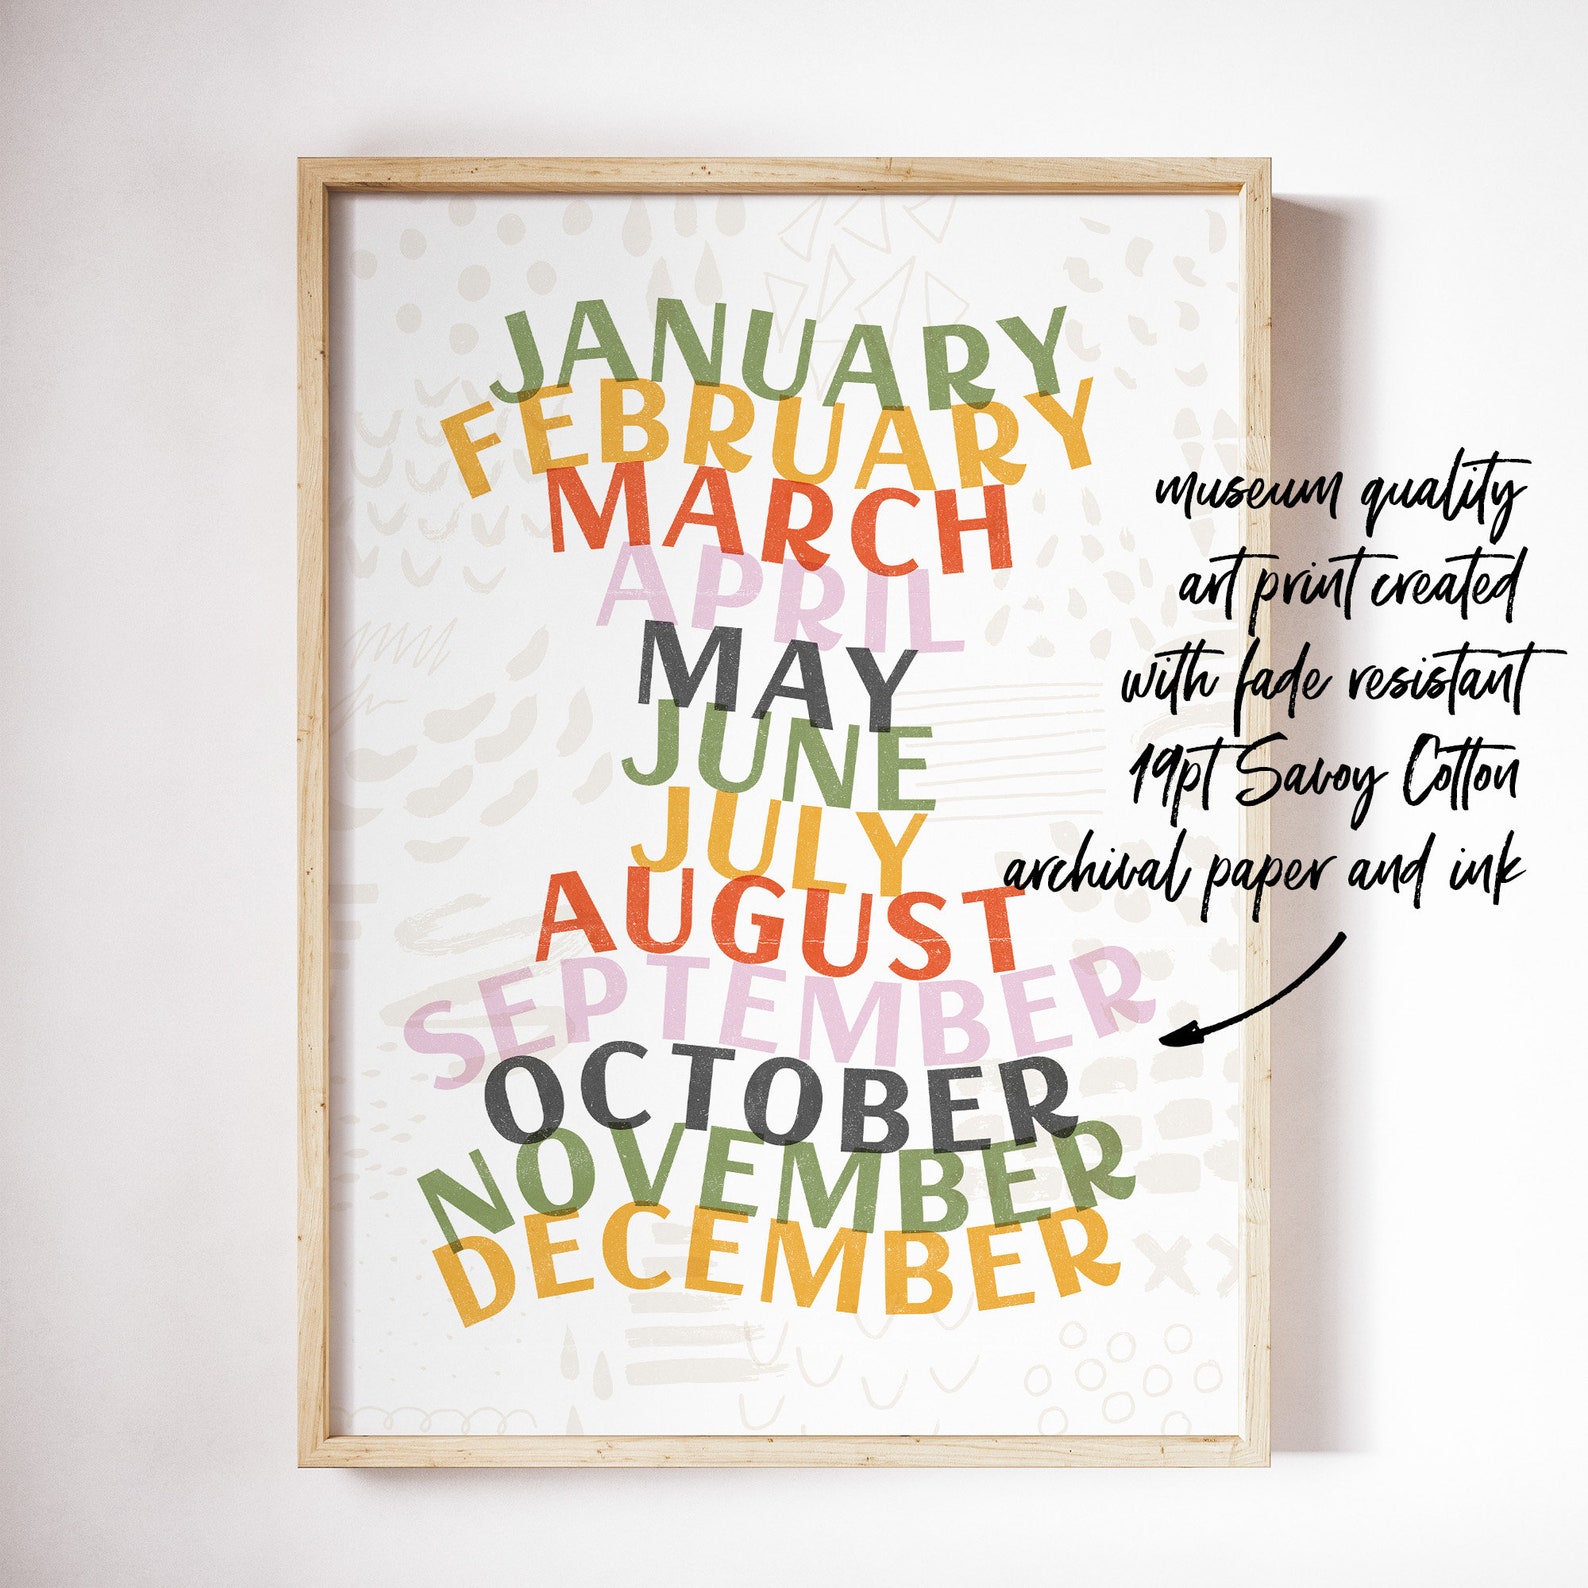 JANUARY
FEBRUARY
MARCH
APRIL
MAY
JUNE
JULY
AUGUST
SEPTEMBER
OCTOBER
NOVEMBER
DECEMBER
museum quality
art print created
with fade resistant
19pt Savoy Cotton
archival paper and ink